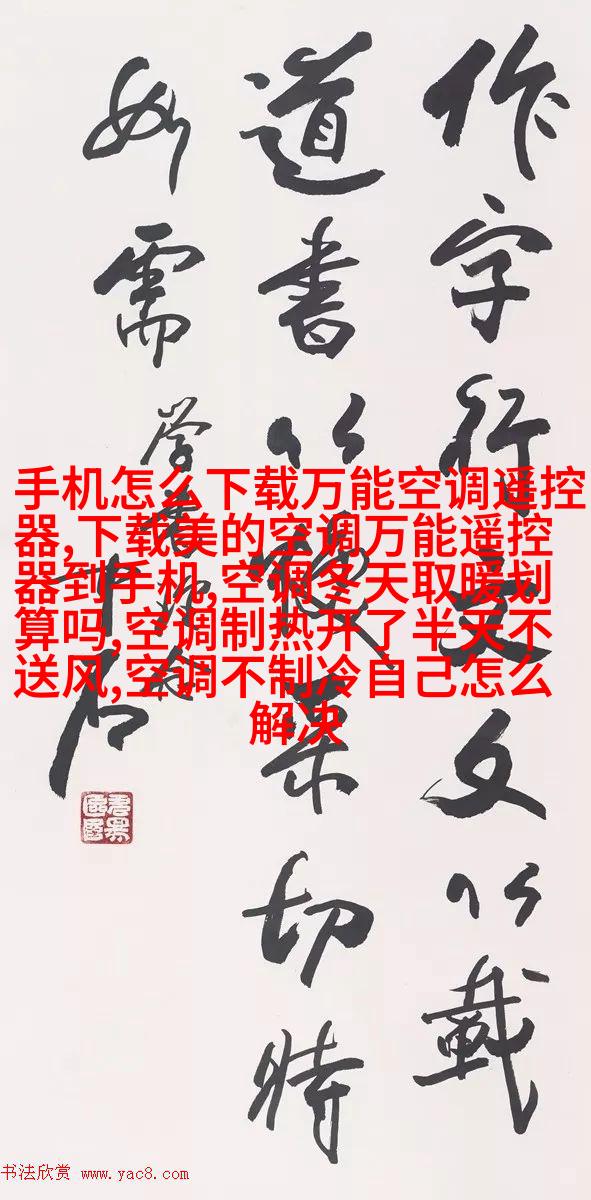 作字行文文以載
道書以果切時
如需
手机怎么下载万能空调遥控
器,下载美的空调万能遥控
器到手机,空调冬天取暖划
算吗,空调制热开了半天不
送风,空调不制冷自己怎么
解决
书法欣赏 www.yac8.com